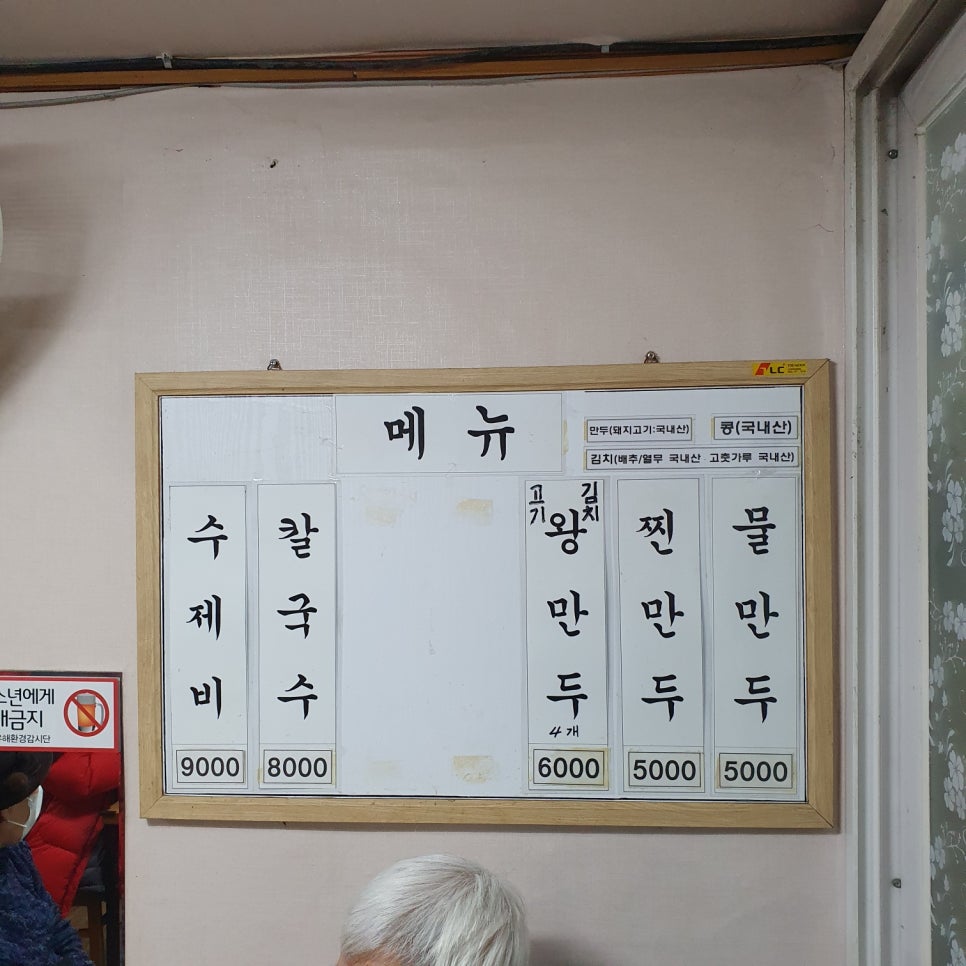 메뉴
만두(돼지고기:국내산)
콩(국내산)
김치(배추/열무 국내산 고춧가루 국내산)
수제비
9000
칼국수
8000
고기
김치
왕만두
4개
6000
찐만두
5000
물만두
5000
LC
소년에게
매금지
유해환경감시단